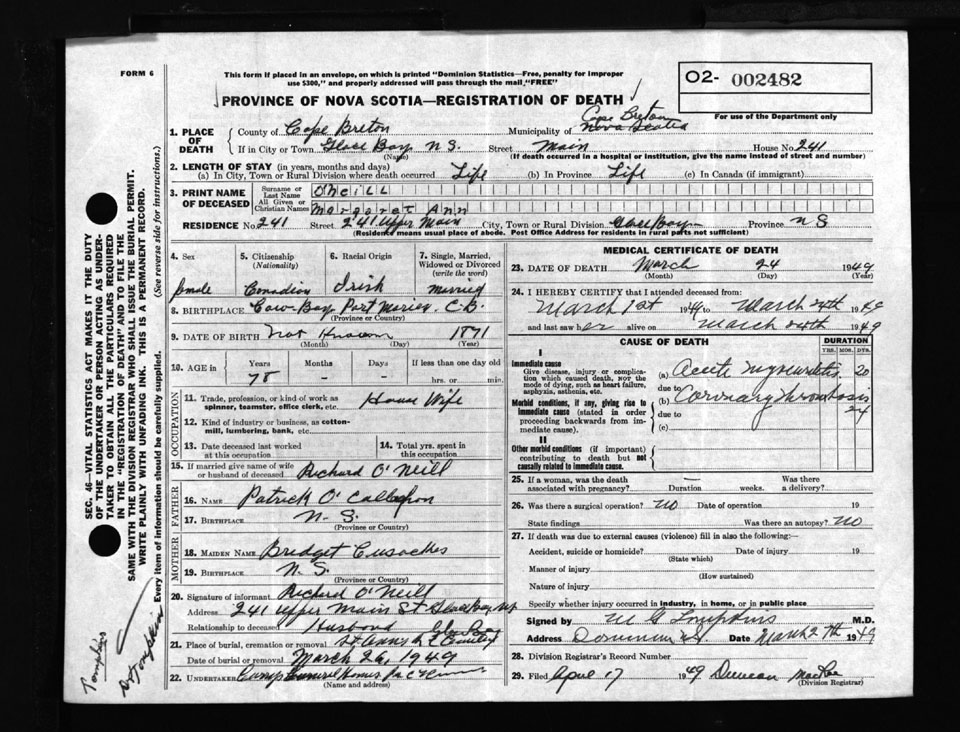 FORM 6
This form if placed in an envelope, on which is printed "Dominion Statistics—Free, penalty for improper
use $300," and properly addressed will pass through the mail "FREE"
O2- 002482
For use of the Department only
PROVINCE OF NOVA SCOTIA—REGISTRATION OF DEATH
1. PLACE OF DEATH County of Cape Breton Municipality of Cape Breton Nova Scotia
If in City or Town Glace Bay N.S. Street Main House No. 241
(Name) (If death occurred in a hospital or institution, give the name instead of street and number)
2. LENGTH OF STAY (in years, months and days)
(a) In City, Town or Rural Division where death occurred Life (b) In Province Life (c) In Canada (if immigrant)
3. PRINT NAME OF DECEASED Surname or Last Name O'Neill
All Given or Christian Names Margaret Ann
RESIDENCE No. 241 Street 241 Upper Main City, Town or Rural Division Glace Bay Province N S
(Residence means usual place of abode. Post Office Address for residents in rural parts not sufficient)
4. Sex 5. Citizenship (Nationality) 6. Racial Origin 7. Single, Married, Widowed or Divorced (write the word)
female Canadian Irish married
8. BIRTHPLACE Cow Bay Port Morien C.B.
(Province or Country)
9. DATE OF BIRTH Not Known 1871
(Month) (Day) (Year)
10. AGE in Years Months Days If less than one day old
78 - - hrs. or min.
OCCUPATION
11. Trade, profession, or kind of work as spinner, teamster, office clerk, etc. House Wife
12. Kind of industry or business, as cotton-mill, lumbering, bank, etc.
13. Date deceased last worked at this occupation 14. Total yrs. spent in this occupation
15. If married give name of wife or husband of deceased Richard O'Neill
FATHER
16. NAME Patrick O'Callaghan
17. BIRTHPLACE N.S.
(Province or Country)
MOTHER
18. MAIDEN NAME Bridget
19. BIRTHPLACE N.S.
(Province or Country)
20. Signature of informant Richard O'Neill
Address 241 Upper Main St Glace Bay NS
Relationship to deceased Husband
21. Place of burial, cremation or removal St Anns
Date of burial or removal March 26, 1949
22. UNDERTAKER
(Name and address)
MEDICAL CERTIFICATE OF DEATH
23. DATE OF DEATH March 24 1949
(Month) (Day) (Year)
24. I HEREBY CERTIFY that I attended deceased from:
March 1st 1949 to March 24th 1949
and last saw her alive on March 24th 1949
CAUSE OF DEATH DURATION
YRS. MOS. DYS.
I
Immediate cause
Give disease, injury or complication which caused death, NOT the mode of dying, such as heart failure, asphyxia, asthenia, etc.
(a) Acute 20
due to
Morbid conditions, if any, giving rise to immediate cause (stated in order proceeding backwards from immediate cause).
(b) Coronary thrombosis 24
due to
(c)
II
Other morbid conditions (if important) contributing to death but not causally related to immediate cause.
25. If a woman, was the death associated with pregnancy? — Duration weeks. Was there a delivery?
26. Was there a surgical operation? NO Date of operation 19
State findings Was there an autopsy? NO
27. If death was due to external causes (violence) fill in also the following:—
Accident, suicide or homicide? Date of injury 19
(State which)
Manner of injury
(How sustained)
Nature of injury
Specify whether injury occurred in industry, in home, or in public place
Signed by M G Tompkins M.D.
Address Dominion NS Date March 27th 1949
28. Division Registrar's Record Number
29. Filed April 17 1949 Duncan MacRae
(Division Registrar)
SEC. 46—VITAL STATISTICS ACT MAKES IT THE DUTY
OF THE UNDERTAKER OR PERSON ACTING AS UNDER-
TAKER TO OBTAIN ALL THE PARTICULARS REQUIRED
IN THE "REGISTRATION OF DEATH" AND TO FILE THE
SAME WITH THE DIVISION REGISTRAR WHO SHALL ISSUE THE BURIAL PERMIT.
WRITE PLAINLY WITH UNFADING INK. THIS IS A PERMANENT RECORD.
Every item of information should be carefully supplied. (See reverse side for instructions.)
Tompkins
Dr Tompkins